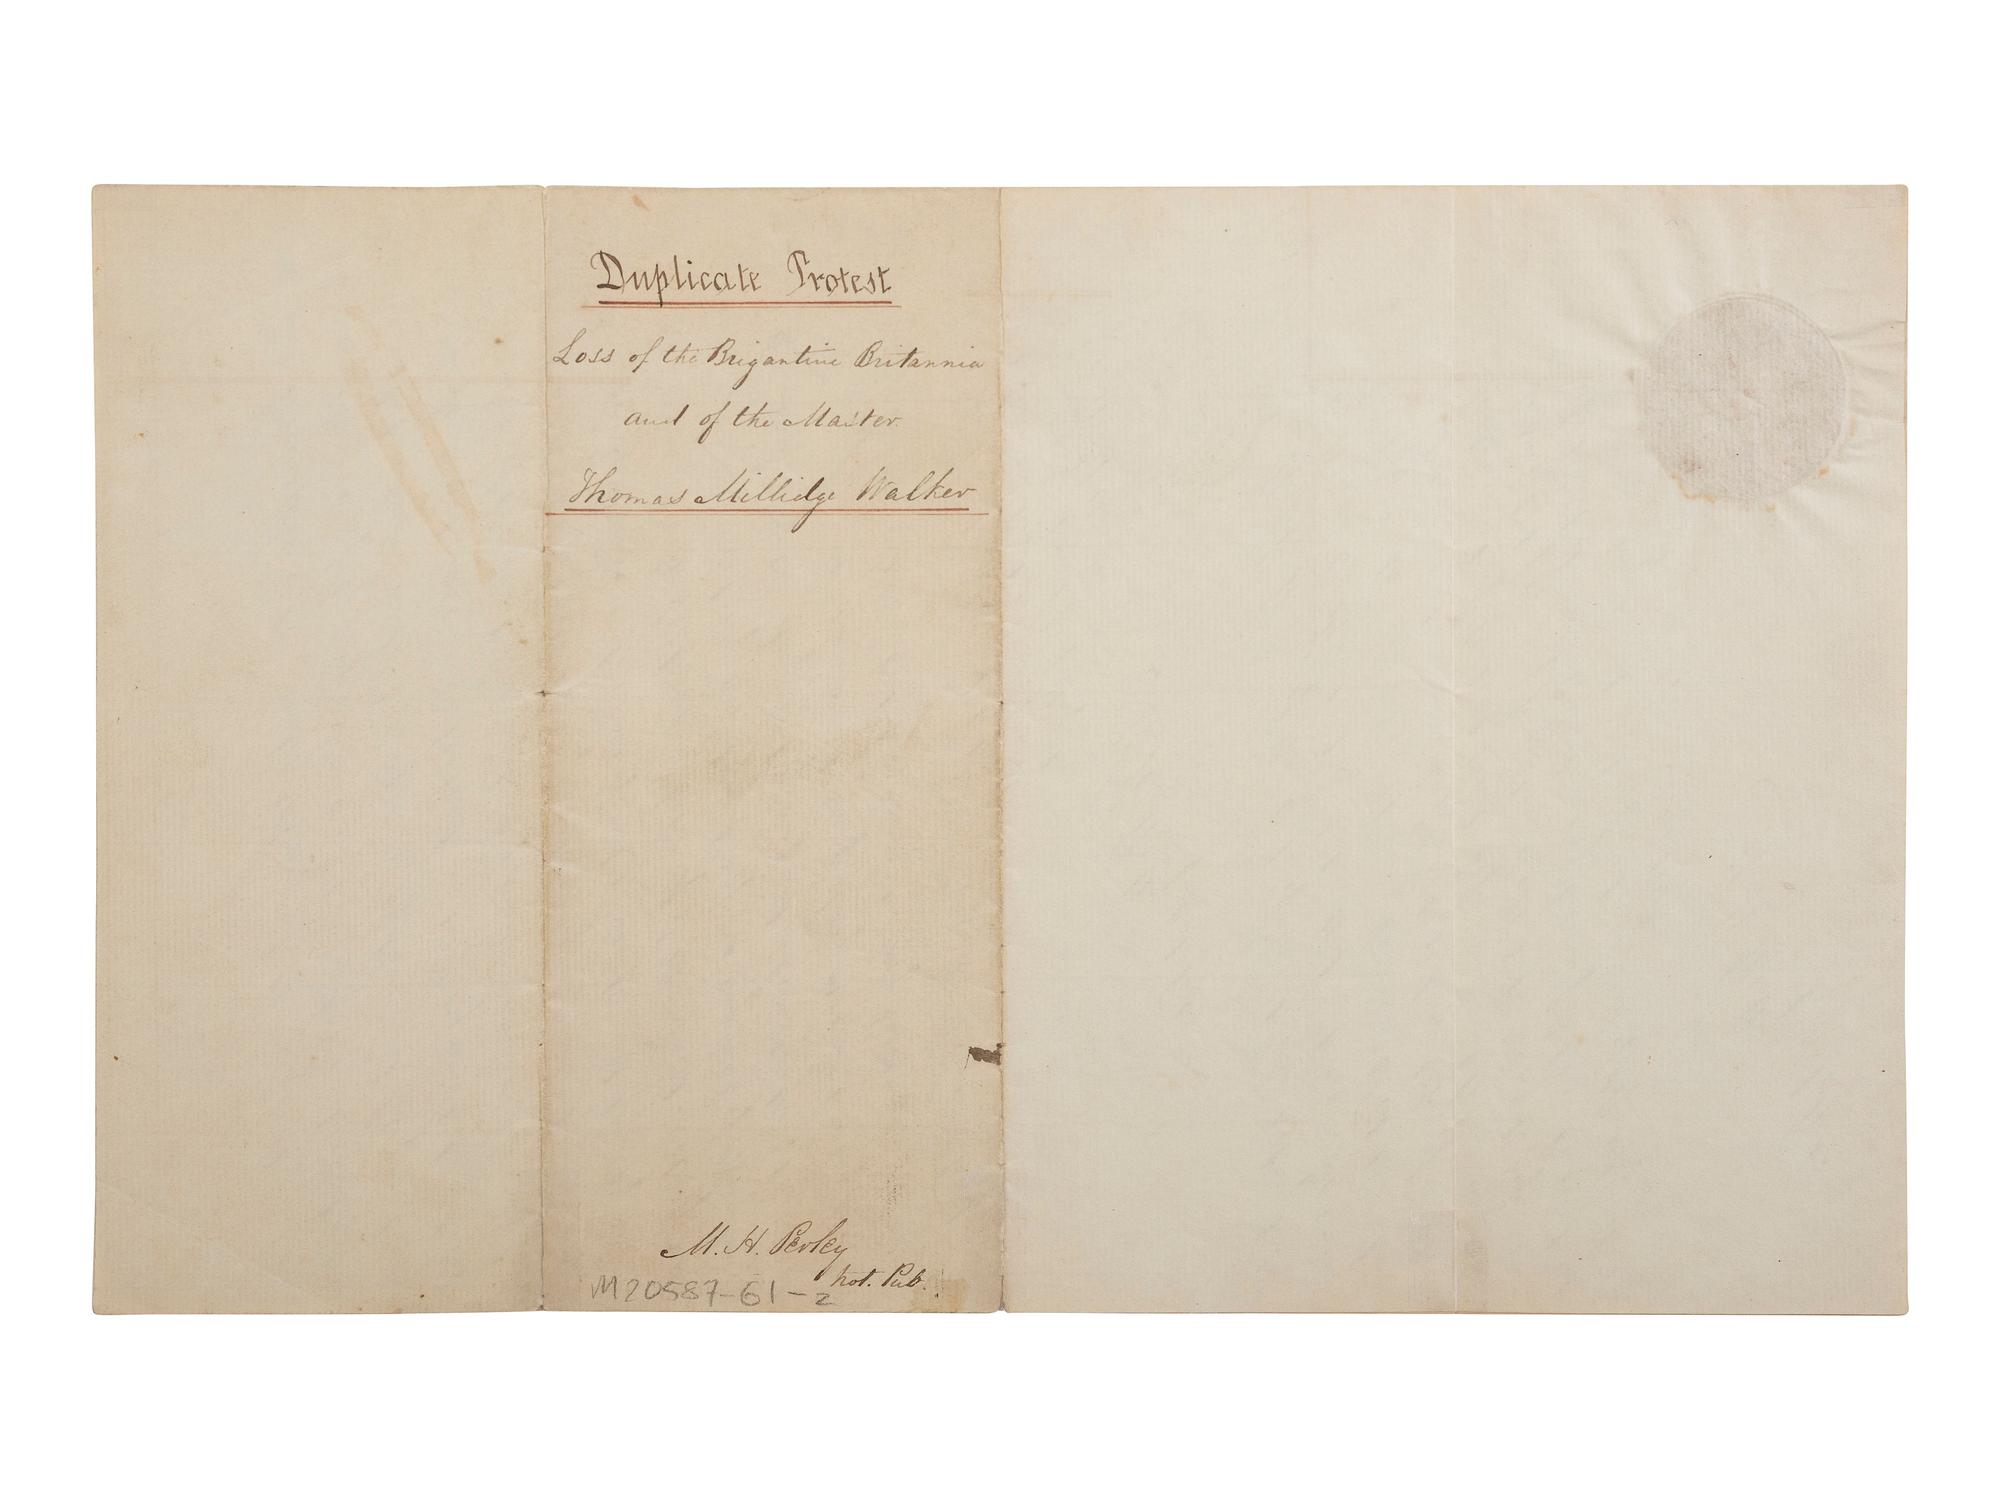 Duplicate Protest
Loss of the Brigantine Britannia
and of the Master
Thomas Millidge Walker
M. H. Perley
Not. Pub.
M20587-61-2